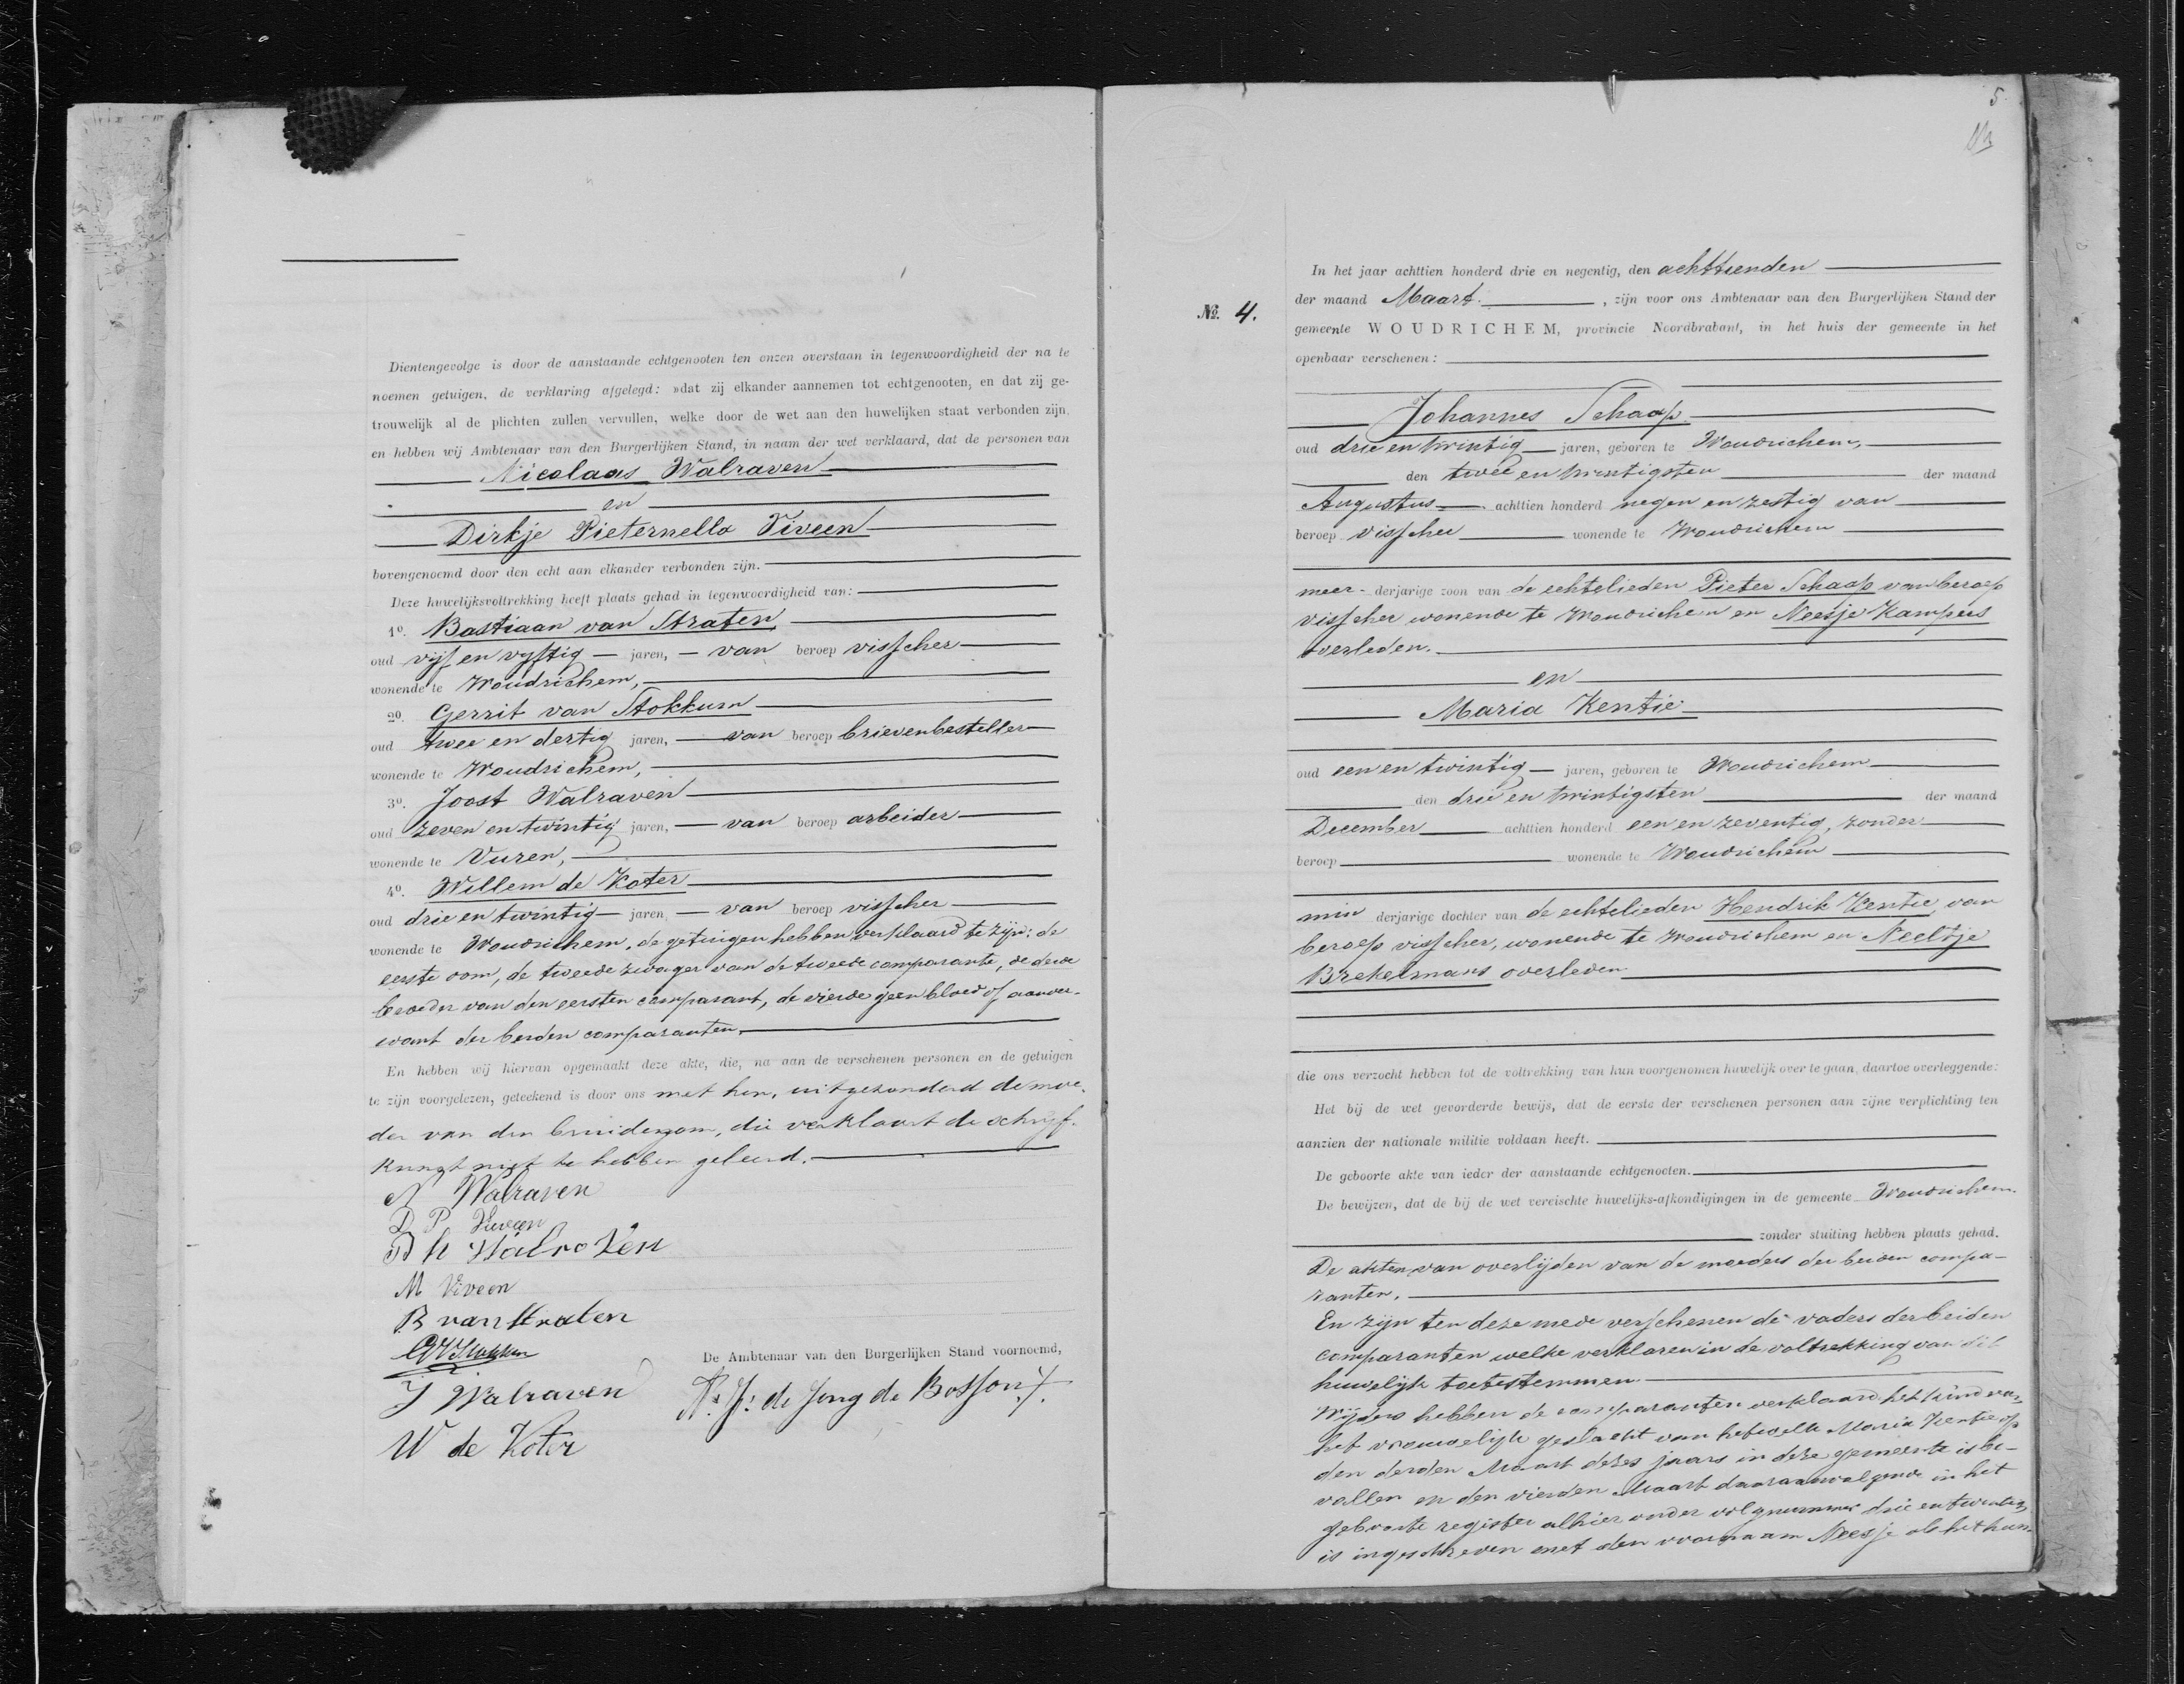 Dientengevolge is door de aanstaande echtgenooten ten onzen overstaan in tegenwoordigheid der na te
noemen getuigen, de verklaring afgelegd: »dat zij elkander aannemen tot echtgenooten, en dat zij ge-
trouwelijk al de plichten zullen vervullen, welke door de wet aan den huwelijken staat verbonden zijn,
en hebben wij Ambtenaar van den Burgerlijken Stand, in naam der wet verklaard, dat de personen van
Nicolaas Walraven
en
Dirkje Pieternella Viveen
bovengenoemd door den echt aan elkander verbonden zijn.
Deze huwelijksvoltrekking heeft plaats gehad in tegenwoordigheid van:
1o. Bastiaan van Straten
oud vijf en vijftig jaren, van beroep visscher
wonende te Woudrichem,
2o. Gerrit van Stokkum
oud twee en dertig jaren, van beroep brievenbesteller
wonende te Woudrichem,
3o. Joost Walraven
oud zeven en twintig jaren, van beroep arbeider
wonende te Vuren,
4o. Willem de Koter
oud drie en twintig jaren van beroep visscher
wonende te Woudrichem, de getuigen hebben verklaard te zijn: de
eerste oom, de tweede zwager van de tweede comparante, de derde
broeder van den eersten comparant, de vierde geen bloed of aanver-
want der beiden comparanten.
En hebben wij hiervan opgemaakt deze akte, die, na aan de verschenen personen en de getuigen
te zijn voorgelezen, geteekend is door ons met hen, uitgezonderd de moe-
der van den bruidegom, die verklaart de schrijf-
kunst niet te hebben geleerd.
N Walraven
D P Viveen
h Walraven
M Viveen
B van Straten
De Ambtenaar van den Burgerlijken Stand voornoemd,
J Walraven
de Jong de Bosson
W de Koter
5
No. 4.
In het jaar achttien honderd drie en negentig, den achttienden
der maand Maart, zijn voor ons Ambtenaar van den Burgerlijken Stand der
gemeente WOUDRICHEM, provincie Noordbrabant, in het huis der gemeente in het
openbaar verschenen:
Johannes Schaap
oud drie en twintig jaren, geboren te Woudrichem,
den twee en twintigsten der maand
Augustus achttien honderd negen en zestig van
beroep visscher wonende te Woudrichem
meer- derjarige zoon van de echtelieden Pieter Schaap van beroep
visscher wonende te Woudrichem en Neesje Kampers
overleden.
en
Maria Kentie
oud een en twintig jaren, geboren te Woudrichem
den drie en twintigsten der maand
December achttien honderd een en zeventig, zonder
beroep wonende te Woudrichem
min derjarige dochter van de echtelieden Hendrik Kentie, van
beroep visscher, wonende te Woudrichem en Neeltje
Brekelmans overleden
die ons verzocht hebben tot de voltrekking van hun voorgenomen huwelijk over te gaan, daartoe overleggende:
Het bij de wet gevorderde bewijs, dat de eerste der verschenen personen aan zijne verplichting ten
aanzien der nationale militie voldaan heeft.
De geboorte akte van ieder der aanstaande echtgenooten.
De bewijzen, dat de bij de wet vereischte huwelijks-afkondigingen in de gemeente Woudrichem
zonder stuiting hebben plaats gehad.
De akten van overlijden van de moeders der beiden compa-
ranten.
En zijn ten deze mede verschenen de vaders der beiden
comparanten welke verklaren in de voltrekking van dit
huwelijk toetestemmen
Wijders hebben de comparanten verklaard het kind van
het vrouwelijk geslacht van hetwelk Maria Kentie op
den derden Maart dezes jaars in deze gemeente is be-
vallen en den vierden Maart daaraanvolgende in het
geboorte register alhier onder volgnummer drie en twintig
is ingeschreven met den voornaam Neesje als het hun-